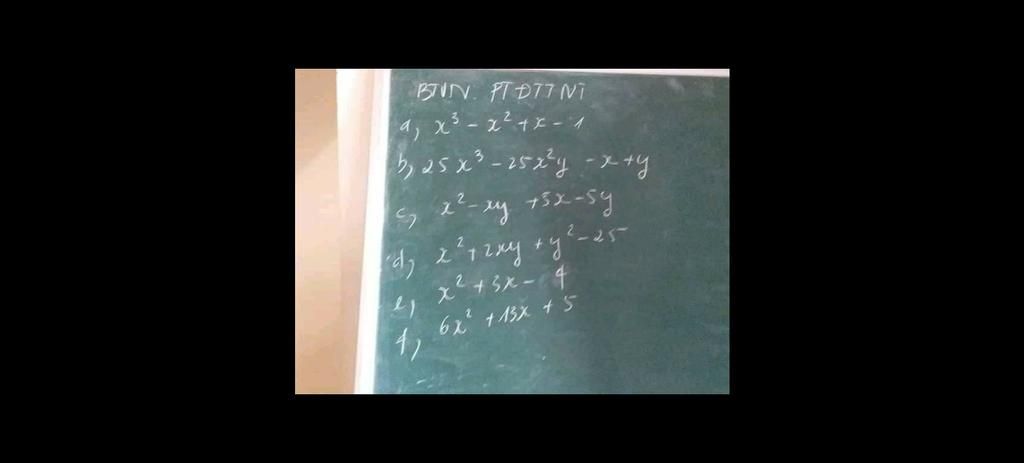 BTVN. PTĐTTNT
a, x³ - x² + x - 1
b, 25x³ - 25x²y - x + y
c, x² - xy + 5x - 5y
d, x² + 2xy + y² - 25
e, x² + 3x - 4
f, 6x² + 13x + 5